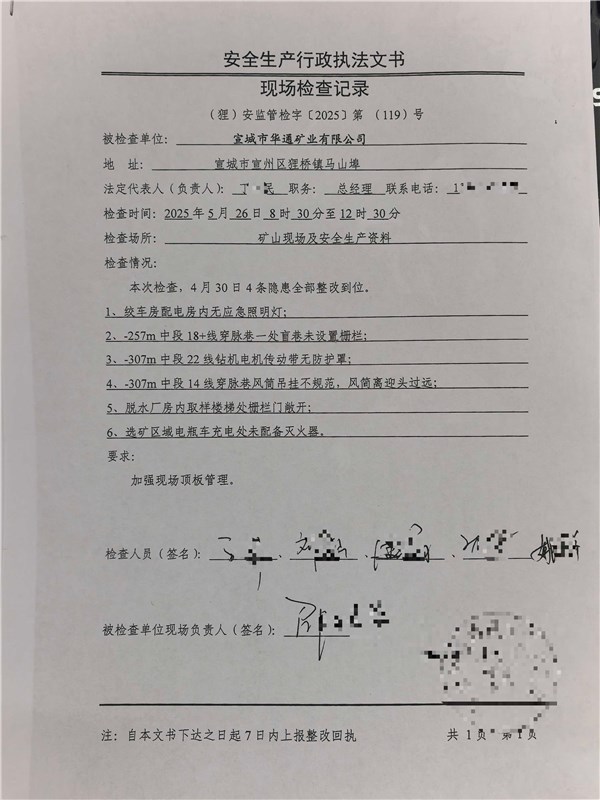 安全生产行政执法文书
现场检查记录
（狸）安监管检字〔2025〕第 （119）号
被检查单位： 宣城市华通矿业有限公司
地 址： 宣城市宣州区狸桥镇马山埠
法定代表人（负责人）： 职务： 总经理 联系电话： 1
检查时间：2025年5月26日8时30分至12时30分
检查场所： 矿山现场及安全生产资料
检查情况：
本次检查，4月30日4条隐患全部整改到位。
1、绞车房配电房内无应急照明灯；
2、-257m中段18+线穿脉巷一处盲巷未设置栅栏；
3、-307m中段22线钻机电机传动带无防护罩；
4、-307m中段14线穿脉巷风筒吊挂不规范，风筒离迎头过远；
5、脱水厂房内取样楼梯处栅栏门敞开；
6、选矿区域电瓶车充电处未配备灭火器。
要求：
加强现场顶板管理。
检查人员（签名）：
被检查单位现场负责人（签名）：
注：自本文书下达之日起7日内上报整改回执 共 1页 第1页